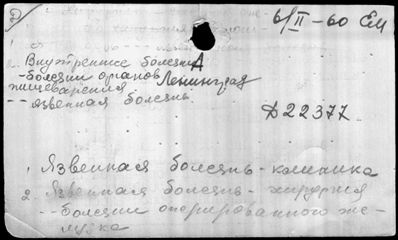 D
6/II-60 ЕМ
2. Внутренние болезни А
-болезни органов Ленинград
пищеварения
-- язвенная болезнь
D22377
1. Язвенная болезнь - клиника
2. Язвенная болезнь - хирургия
-- болезни оперированного же-
лудка